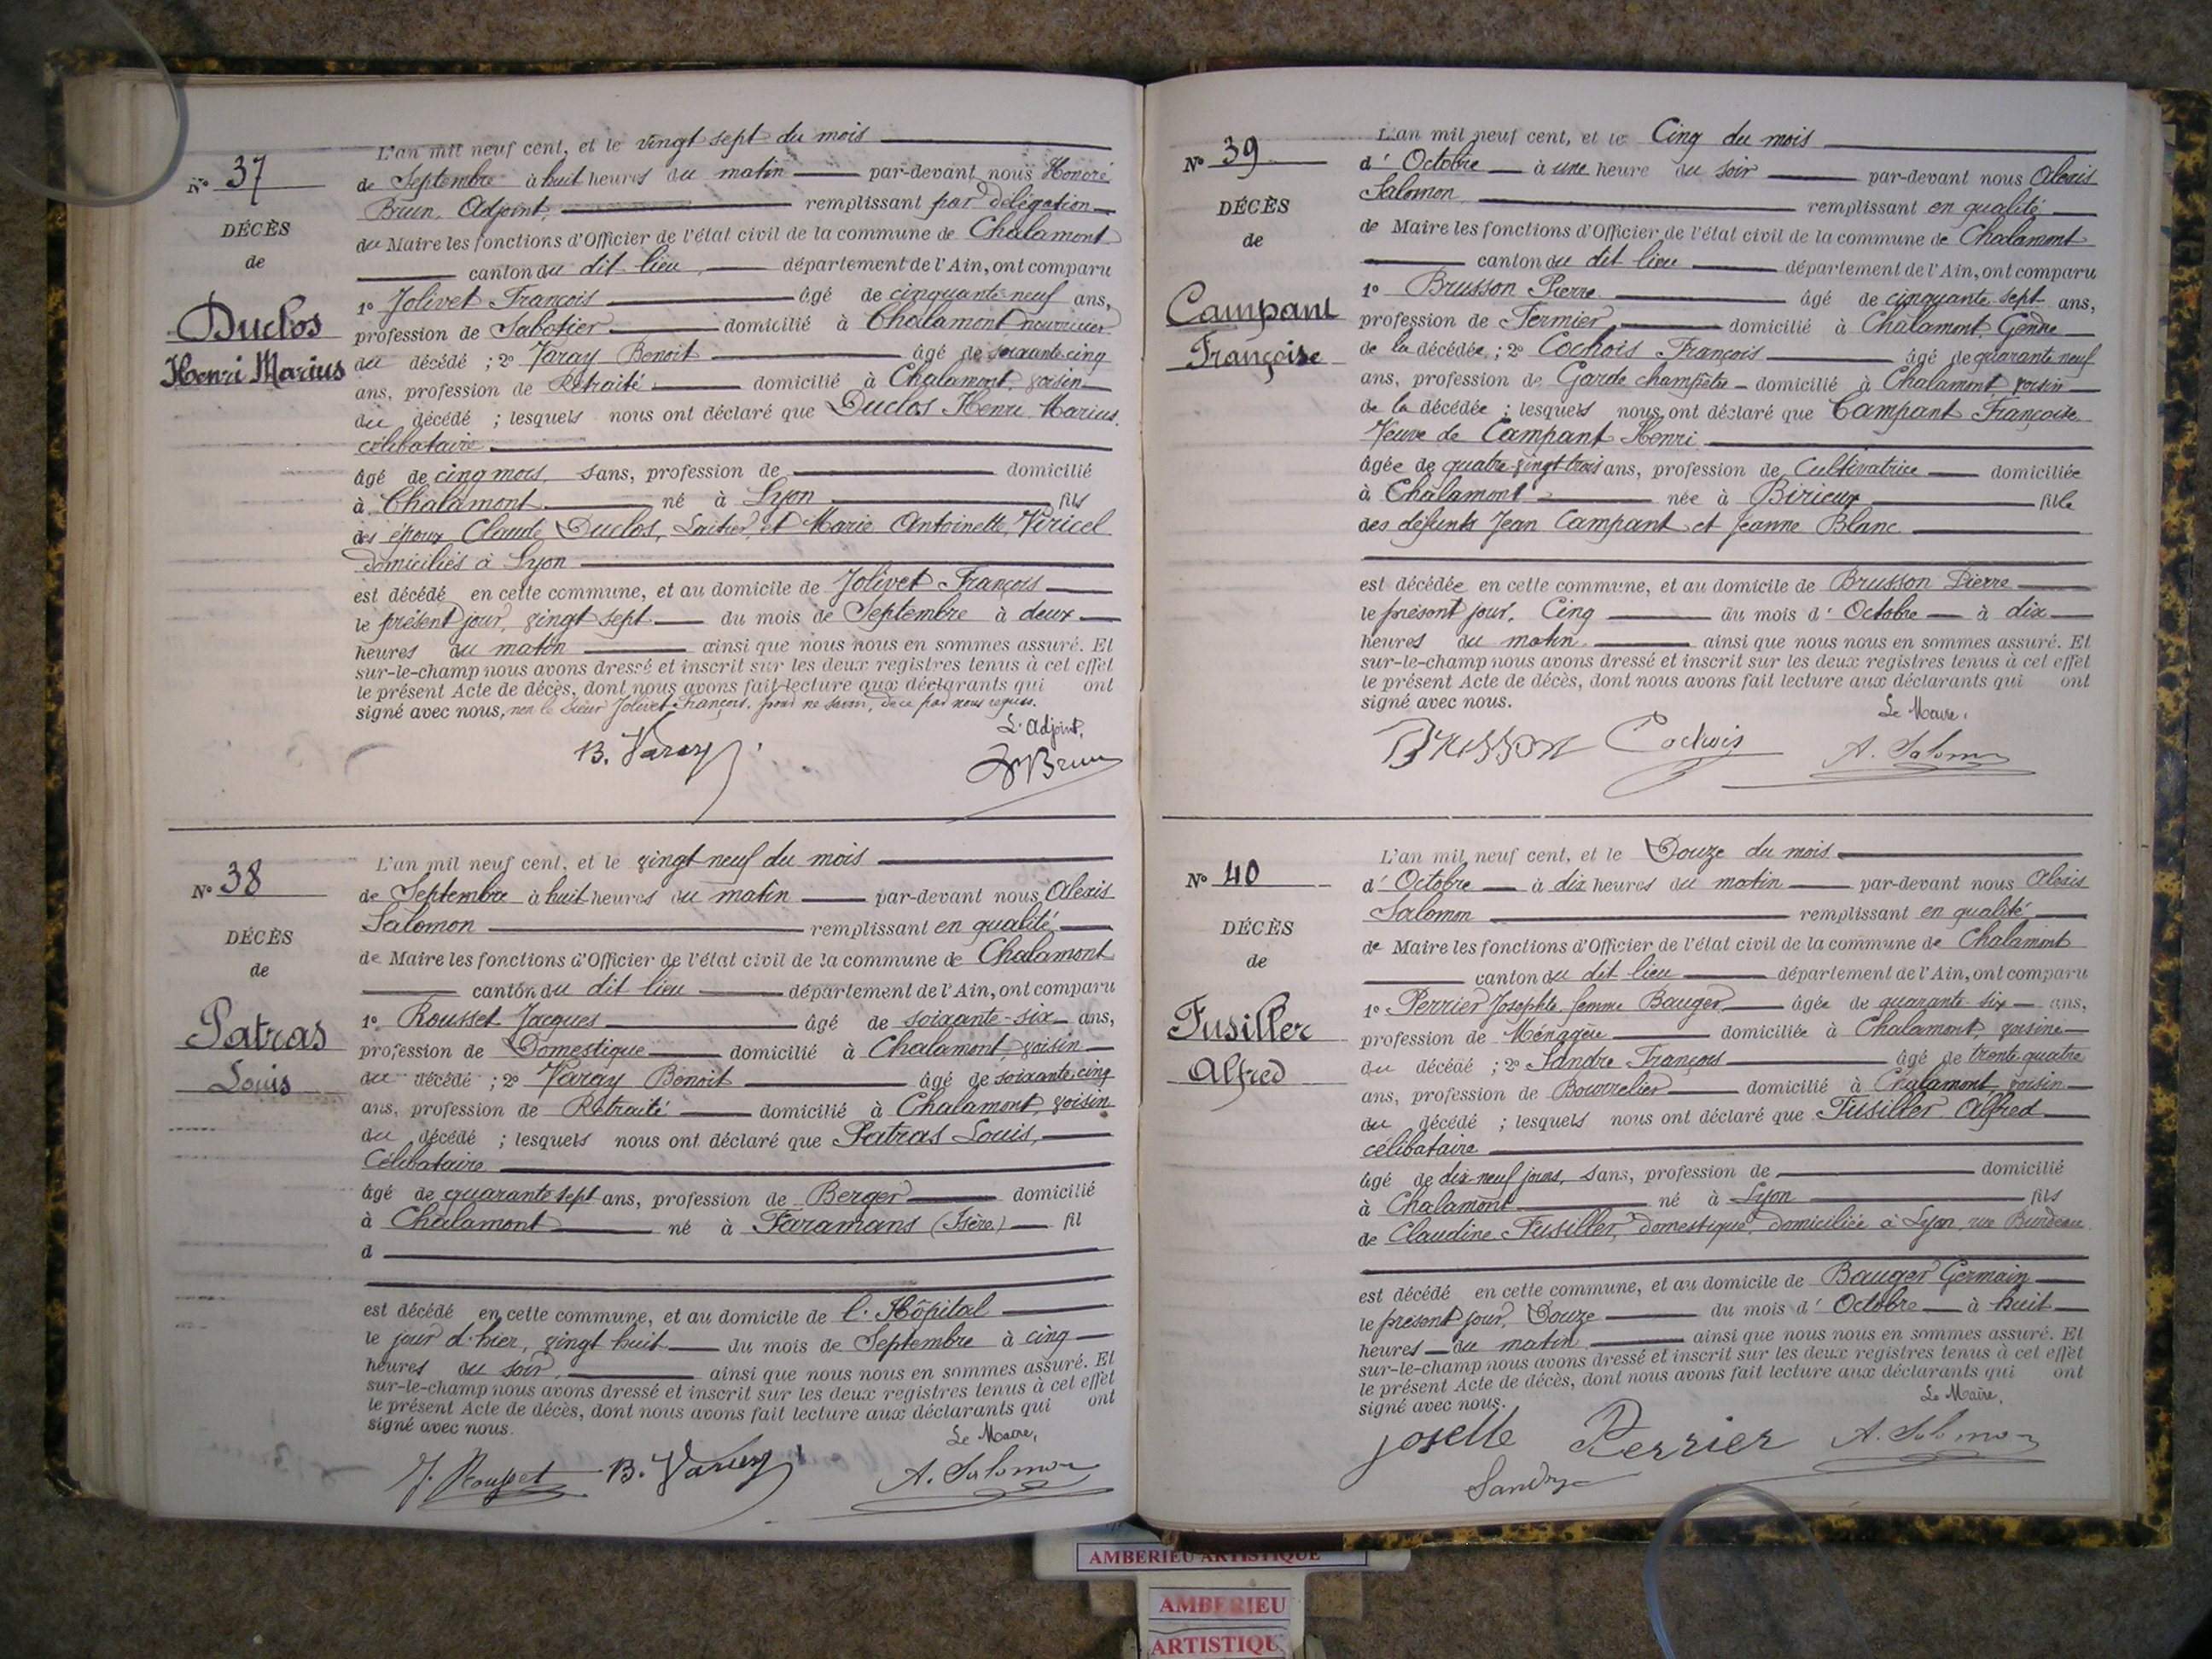 N° 37
DÉCÈS
de
Duclos
Henri Marius
L'an mil neuf cent, et le vingt sept du mois
de Septembre à huit heures du matin par-devant nous Honoré
Brun, Adjoint, remplissant par délégation
du Maire les fonctions d'Officier de l'état civil de la commune de Chalamont
canton du dit lieu, département de l'Ain, ont comparu
1° Jolivet François âgé de cinquante-neuf ans,
profession de Sabotier domicilié à Chalamont nourricier
du décédé ; 2° Varay Benoit âgé de soixante cinq
ans, profession de Retraité domicilié à Chalamont, voisin
du décédé ; lesquels nous ont déclaré que Duclos Henri Marius,
célibataire
âgé de cinq mois, sans, profession de domicilié
à Chalamont né à Lyon fils
des époux Claude Duclos, Laitier, et Marie Antoinette Viricel
domiciliés à Lyon
est décédé en cette commune, et au domicile de Jolivet François
le présent jour, vingt sept du mois de Septembre à deux
heures du matin ainsi que nous nous en sommes assuré. Et
sur-le-champ nous avons dressé et inscrit sur les deux registres tenus à cet effet
le présent Acte de décès, dont nous avons fait lecture aux déclarants qui ont
signé avec nous, non le sieur Jolivet François, pour ne savoir, de ce par nous requis.
L'adjoint,
B. Varay
Brun
N° 38
DÉCÈS
de
Patras
Louis
L'an mil neuf cent, et le vingt neuf du mois
de Septembre à huit heures du matin par-devant nous Alexis
Salomon remplissant en qualité
de Maire les fonctions d'Officier de l'état civil de la commune de Chalamont
canton du dit lieu département de l'Ain, ont comparu
1° Rousset Jacques âgé de soixante-six ans,
profession de Domestique domicilié à Chalamont, voisin
du décédé ; 2° Varay Benoit âgé de soixante cinq
ans, profession de Retraité domicilié à Chalamont, voisin
du décédé ; lesquels nous ont déclaré que Patras Louis,
Célibataire
âgé de quarante sept ans, profession de Berger domicilié
à Chalamont né à Faramans (Isère) fil
d
est décédé en cette commune, et au domicile de l'Hôpital
le jour d'hier, vingt huit du mois de Septembre à cinq
heures du soir, ainsi que nous nous en sommes assuré. Et
sur-le-champ nous avons dressé et inscrit sur les deux registres tenus à cet effet
le présent Acte de décès, dont nous avons fait lecture aux déclarants qui ont
signé avec nous.
Le Maire,
J. Rousset B. Varay A. Salomon
N° 39
DÉCÈS
de
Campant
Françoise
L'an mil neuf cent, et le Cinq du mois
d'Octobre à une heure du soir par-devant nous Alexis
Salomon remplissant en qualité
de Maire les fonctions d'Officier de l'état civil de la commune de Chalamont
canton du dit lieu département de l'Ain, ont comparu
1° Brusson Pierre âgé de cinquante sept ans,
profession de Fermier domicilié à Chalamont, Gendre
de la décédée ; 2° Cochois François âgé de quarante neuf
ans, profession de Garde champêtre domicilié à Chalamont voisin
de la décédée ; lesquels nous ont déclaré que Campant Françoise
Veuve de Campant Henri
âgée de quatre-vingt trois ans, profession de Cultivatrice domiciliée
à Chalamont née à Birieux fille
des défunts Jean Campant et Jeanne Blanc
est décédée en cette commune, et au domicile de Brusson Pierre
le présent jour, Cinq du mois d'Octobre à dix
heures du matin. ainsi que nous nous en sommes assuré. Et
sur-le-champ nous avons dressé et inscrit sur les deux registres tenus à cet effet
le présent Acte de décès, dont nous avons fait lecture aux déclarants qui ont
signé avec nous.
Le Maire,
Brusson Cochois A. Salomon
N° 40
DÉCÈS
de
Fusiller
Alfred
L'an mil neuf cent, et le Douze du mois
d'Octobre à dix heures du matin par-devant nous Alexis
Salomon remplissant en qualité
de Maire les fonctions d'Officier de l'état civil de la commune de Chalamont
canton du dit lieu département de l'Ain, ont comparu
1° Perrier Josephte femme Bauger âgée de quarante-six ans,
profession de Ménagère domiciliée à Chalamont, voisine
du décédé ; 2° Sandre François âgé de trente quatre
ans, profession de Bourrelier domicilié à Chalamont voisin
du décédé ; lesquels nous ont déclaré que Fusiller Alfred
célibataire
âgé de dix-neuf jours, sans, profession de domicilié
à Chalamont né à Lyon fils
de Claudine Fusiller, domestique, domiciliée à Lyon, rue Burdeau
est décédé en cette commune, et au domicile de Bauger Germain
le présent jour, Douze du mois d'Octobre à huit
heures du matin ainsi que nous nous en sommes assuré. Et
sur-le-champ nous avons dressé et inscrit sur les deux registres tenus à cet effet
le présent Acte de décès, dont nous avons fait lecture aux déclarants qui ont
signé avec nous.
Le Maire,
Josette Perrier A. Salomon
Sandre
AMBERIEU ARTISTIQUE
AMBERIEU
ARTISTIQU